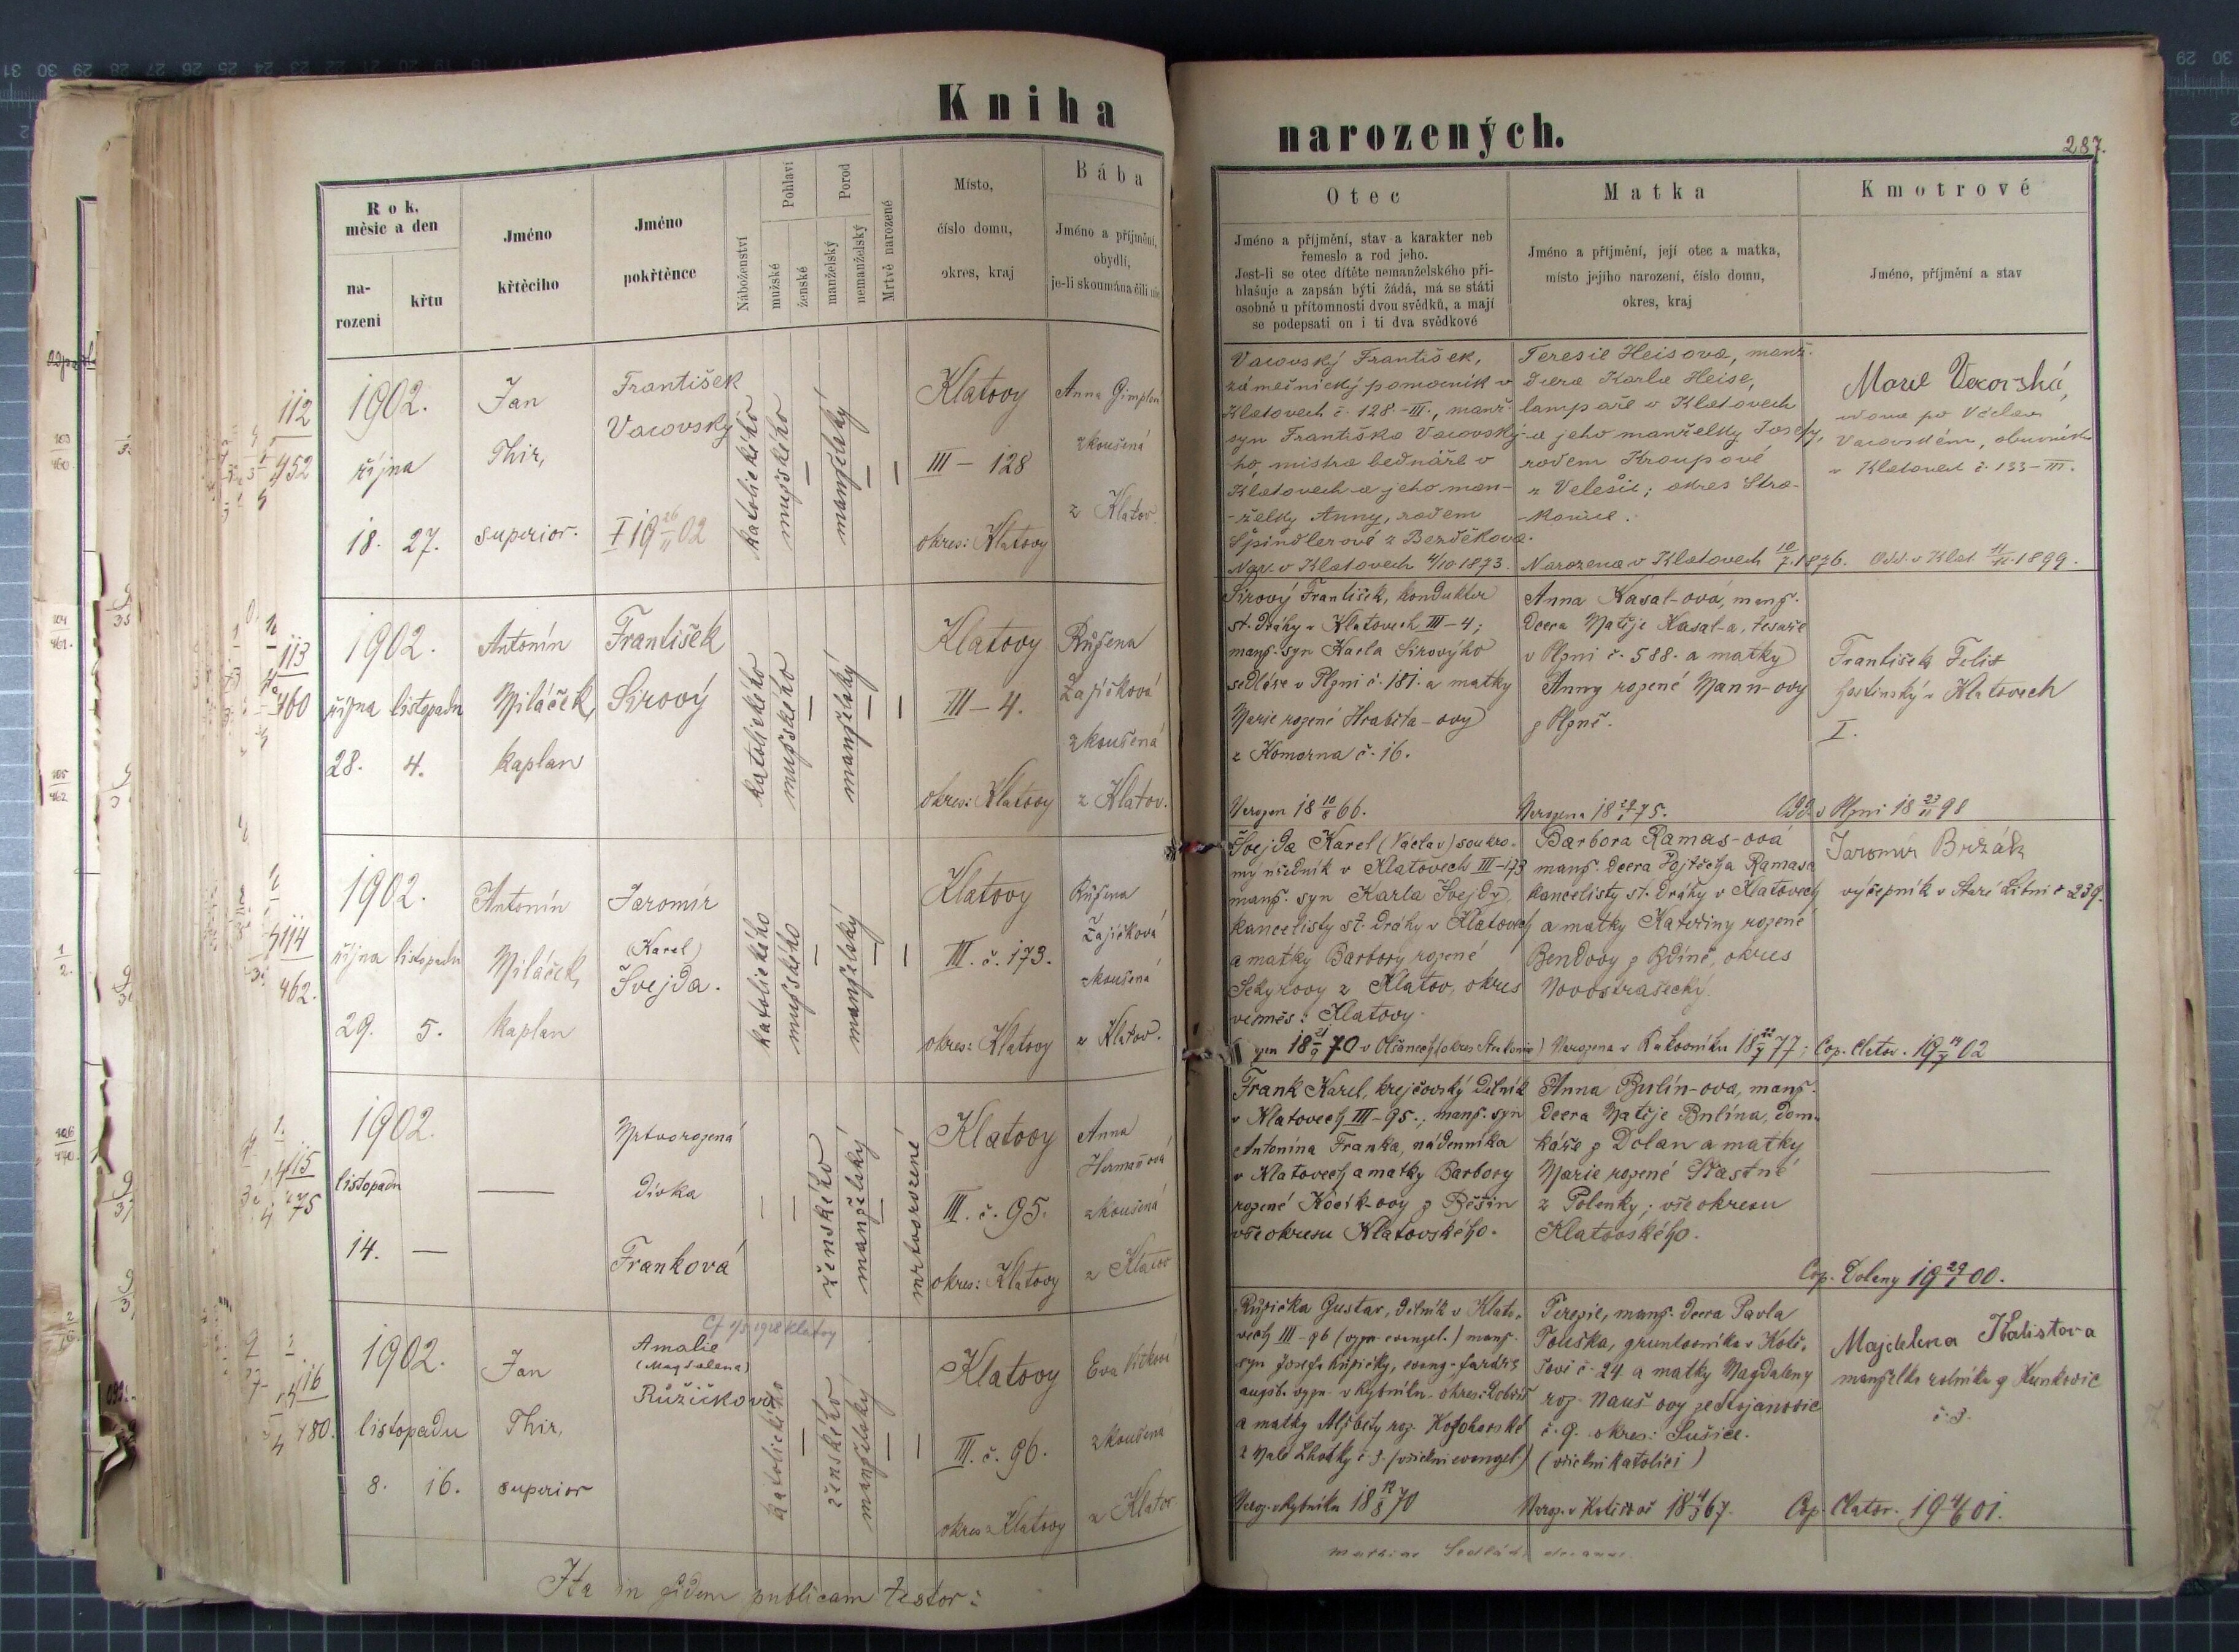 Kniha
narozených.
287.
Rok,
měsíc a den
na-
rození
křtu
Jméno
křtěcího
Jméno
pokřtěnce
Náboženství
Pohlaví
mužské
ženské
Porod
manželský
nemanželský
Mrtvě narozené
Místo,
číslo domu,
okres, kraj
Bába
Jméno a příjmění,
obydlí,
je-li skoumána čili nic
Otec
Jméno a příjmění, stav a karakter neb
řemeslo a rod jeho.
Jest-li se otec dítěte nemanželského při-
hlašuje a zapsán býti žádá, má se státi
osobně u přítomnosti dvou svědků, a mají
se podepsati on i ti dva svědkové
Matka
Jméno a příjmění, její otec a matka,
místo jejího narození, číslo domu,
okres, kraj
Kmotrové
Jméno, příjmění a stav
112
452
1902.
října
18. 27.
Jan
Thir,
superior.
František
Vacovský
katolického
mužského
manželský
Klatovy
III – 128
okres: Klatovy
Anna
zkoušená
z Klatov
Vacovský František,
zámečnický pomocník v
Klatovech č. 128.-III., manž.
syn Františka Vacovský-
ho, mistra bednáře v
Klatovech a jeho man-
-želky Anny, rodem
Špindlerové z Bezděkova.
Nar. v Klatovech 4/10 1873.
Teresie Heisova, manž.
dcera Karla Heise,
lampaře v Klatovech
a jeho manželky Josefy,
rodem Kroupové
z Velešic; okres Stra-
-konice.
Narozena v Klatovech 10/7. 1876.
Marie Vacovská,
vdova po Václavu
Vacovském, obuvníku
v Klatovech č. 133-III.
Odd. v Klat. 1899.
113
460
1902.
října listopadu
28. 4.
Antonín
Miláček,
kaplan
František
Sirový
katolického
mužského
manželský
Klatovy
III – 4.
okres: Klatovy
Růžena
Zajíčková
zkoušená
z Klatov.
Sirový František, konduktér
st. dráhy v Klatovech III – 4;
manž. syn Karla Sirového
sedláře v Plzni č. 181. a matky
Marie rozené Hraběta-ovy
z Komorna č. 16.
Narozen 18 10/8 66.
Anna Kasal-ová, manž.
dcera Matěje Kasal-a, tesaře
v Plzni č. 588. a matky
Anny rozené Mann-ovy
z Plzně.
Narozena 18 75.
František Felix
hostinský v Klatovech
I.
Odd. v Plzni 18 23/11 98
114
462.
1902.
října listopadu
29. 5.
Antonín
Miláček,
kaplan
Jaromír
(Karel)
Švejda.
katolického
mužského
manželský
Klatovy
III. č. 173.
okres: Klatovy
Růžena
Zajíčková
zkoušená
z Klatov.
Švejda Karel (Václav) soukro-
mý úředník v Klatovech III – 173
manž. syn Karla Švejdy,
kancelisty st. dráhy v Klatovech
a matky Barbory rozené
Sekyrovy z Klatov, okres
vesměs: Klatovy.
18 21/9 70 v Olšanech (okres Strakonice)
Barbora Ramas-ová
manž. dcera Vojtěcha Ramasa
kancelisty st. dráhy v Klatovech
a matky Kateřiny rozené
Bendovy z Bdíně, okres
Novostrašecký.
Narozena v Rakovníku 18 77;
Jaromír Brizák
výčepník v Staré Libni č 239.
Cop. Clatov. 19 02
115
475
1902.
listopadu
14. —
Mrtvorozená
dívka
Franková
ženského
manželský
mrtvorozené
Klatovy
III. č. 95.
okres: Klatovy
Anna
Hermannová
zkoušená
z Klatov
Frank Karel, krejčovský dělník
v Klatovech III – 95.; manž. syn
Antonína Franka, nádenníka
v Klatovech a matky Barbory
rozené Kodík-ovy z Běšin
vše okresu Klatovského.
Anna Bulín-ova, manž.
dcera Matěje Bulína, dom-
káře z Dolan a matky
Marie rozené Šťastné
z Polenky; vše okresu
Klatovského.
Cop. Dolany 19 29/1 00.
116
480.
1902.
listopadu
8. 16.
Jan
Thir,
superior
Amalie
(Magdalena)
Růžičková
katolického
ženského
manželský
Klatovy
III. č. 96.
okres: Klatovy
Eva
zkoušená
z Klatov
Růžička Gustav, dělník v Klato-
vech III – 96 (vyzn. evangel.) manž.
syn Josefa Růžičky, evang.
augsb. vyzn. v Rybníku okres:
a matky Alžběty roz.
z Malé Lhotky č. 3. (všichni evangel.)
Naroz. v Rybníku 18 70
Terezie, manž. dcera Pavla
Pouška, gruntovníka v Koli-
č. 24 a matky Magdaleny
roz. Nauš-ovy ze Stojanovic
č. 9. okres: Sušice.
(všichni katolíci)
18 67.
Majdalena
manželka rolníka z Kunkovic
č. 3.
Cop. Clatov. 19 01.
Ita in fidem publicam testor: